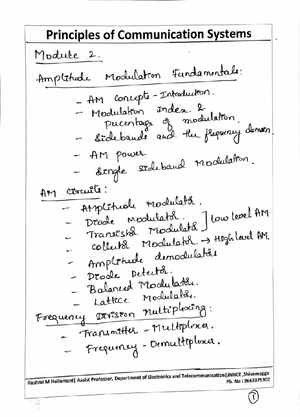 Principles of Communication Systems
Module 2.
Amplitude Modulation Fundamentals:
- AM Concepts - Introduction.
- Modulation Index &
Percentage of modulation.
- Sidebands and the frequency domain.
- AM power
- Single Sideband Modulation.
AM Circuits:
- Amplitude Modulator.
- Diode Modulator.
- Transistor Modulator ] Low level AM
- Collector Modulator. → High level AM.
- Amplitude demodulators
- Diode Detector.
- Balanced Modulators.
- Lattice Modulator.
Frequency Division Multiplexing:
- Transmitter - Multiplexer.
- Frequency - Demultiplexer.
Rashmi M Hullamani| Assist Professor, Department of Electronics and Telecommunication|JNNCE ,Shivamogga
Ph. No :
1